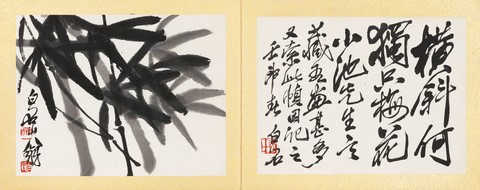 橫斜何
獨只梅花
小池先生言
藏吾畫甚多
又索此慎因記之
白石
白石山翁